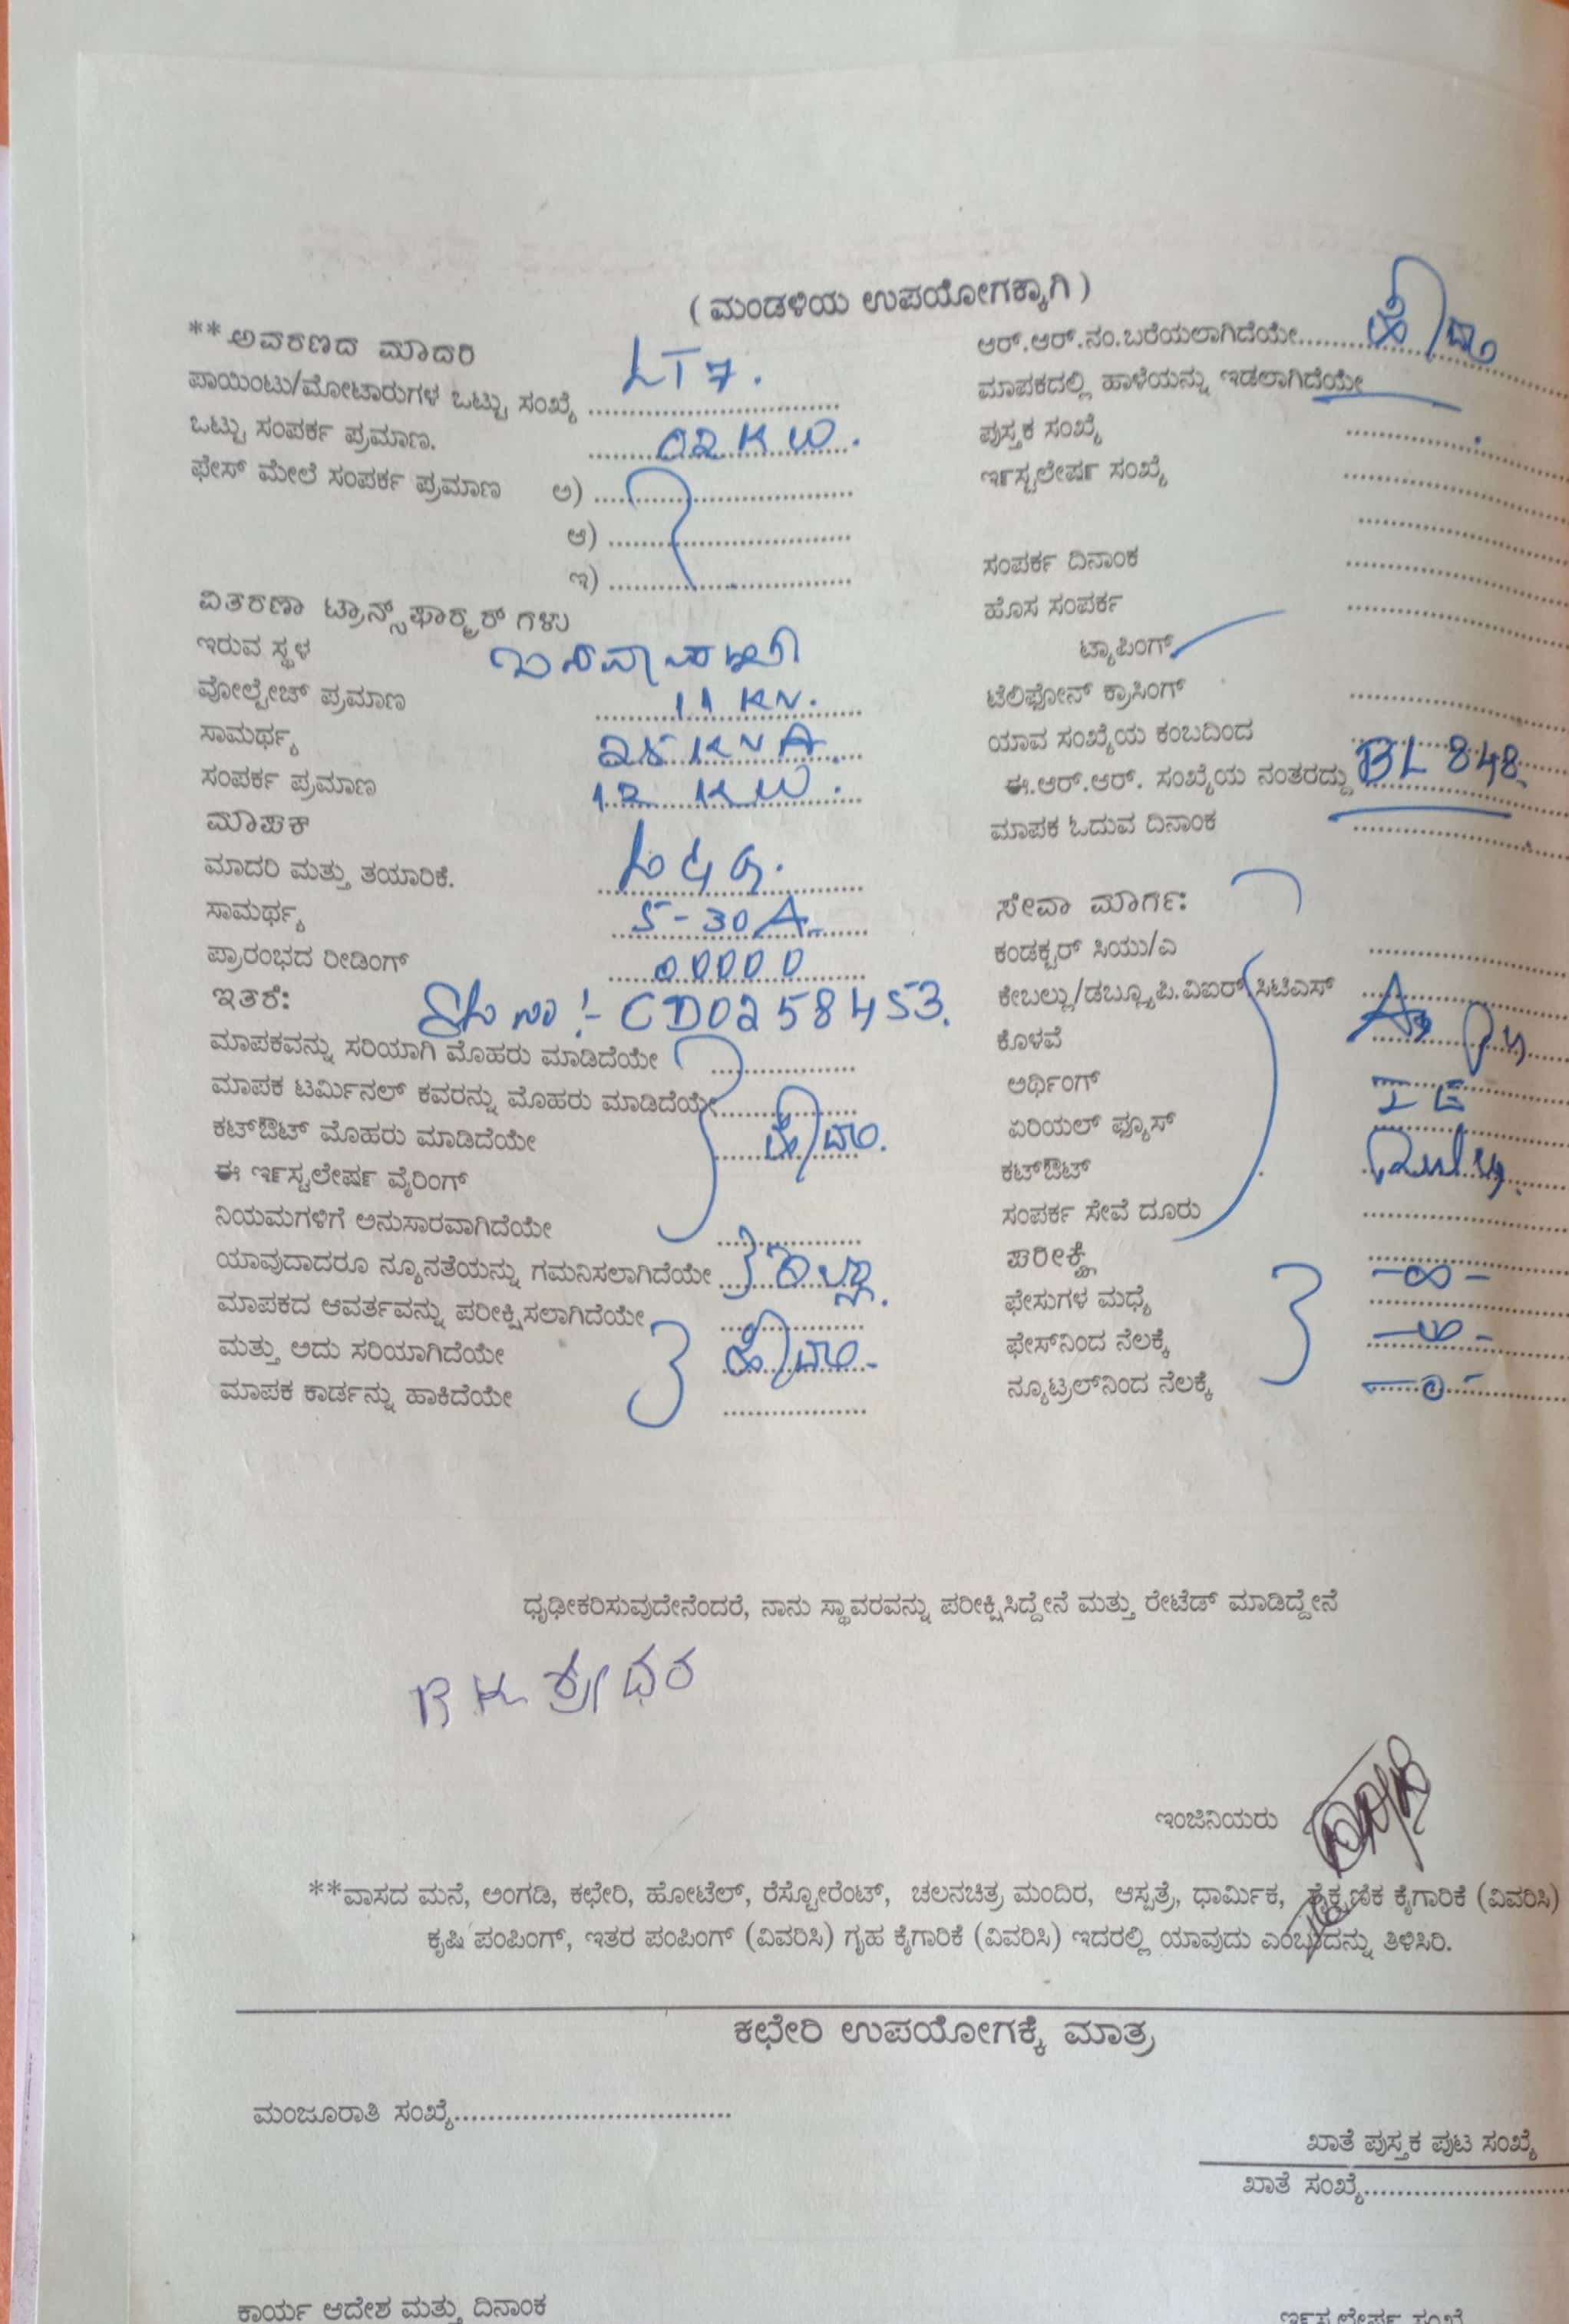 ( ಮಂಡಳಿಯ ಉಪಯೋಗಕ್ಕಾಗಿ )
**ಅವರಣದ ಮಾದರಿ
LT7.
ಪಾಯಿಂಟು/ಮೋಟಾರುಗಳ ಒಟ್ಟು ಸಂಖ್ಯೆ ..............................
ಒಟ್ಟು ಸಂಪರ್ಕ ಪ್ರಮಾಣ. 02 KW.
ಫೇಸ್ ಮೇಲೆ ಸಂಪರ್ಕ ಪ್ರಮಾಣ ಅ) ..............................
ಆ) ..............................
ಇ) ..............................
ವಿತರಣಾ ಟ್ರಾನ್ಸ್‌ಫಾರ್ಮ್ರರ್ ಗಳು
ಇರುವ ಸ್ಥಳ
ವೋಲ್ಟೇಚ್ ಪ್ರಮಾಣ 11 KV.
ಸಾಮರ್ಥ್ಯ 25 KVA
ಸಂಪರ್ಕ ಪ್ರಮಾಣ 12 KW.
ಮಾಪಕ
ಮಾದರಿ ಮತ್ತು ತಯಾರಿಕೆ. L&G.
ಸಾಮರ್ಥ್ಯ 5-30A
ಪ್ರಾರಂಭದ ರೀಡಿಂಗ್ 00000
ಇತರೆ: Sl no :- CD0258453.
ಮಾಪಕವನ್ನು ಸರಿಯಾಗಿ ಮೊಹರು ಮಾಡಿದೆಯೇ
ಮಾಪಕ ಟರ್ಮಿನಲ್ ಕವರನ್ನು ಮೊಹರು ಮಾಡಿದೆಯೇ
ಕಟ್‌ಔಟ್ ಮೊಹರು ಮಾಡಿದೆಯೇ ಹೌದು.
ಈ ಇನ್‌ಸ್ಟಲೇಷನ್ ವೈರಿಂಗ್
ನಿಯಮಗಳಿಗೆ ಅನುಸಾರವಾಗಿದೆಯೇ
ಯಾವುದಾದರೂ ನ್ಯೂನತೆಯನ್ನು ಗಮನಿಸಲಾಗಿದೆಯೇ ಇಲ್ಲ.
ಮಾಪಕದ ಆವರ್ತವನ್ನು ಪರೀಕ್ಷಿಸಲಾಗಿದೆಯೇ
ಮತ್ತು ಅದು ಸರಿಯಾಗಿದೆಯೇ ಹೌದು
ಮಾಪಕ ಕಾರ್ಡನ್ನು ಹಾಕಿದೆಯೇ
ಆರ್.ಆರ್.ನಂ.ಬರೆಯಲಾಗಿದೆಯೇ ಹೌದು
ಮಾಪಕದಲ್ಲಿ ಹಾಳೆಯನ್ನು ಇಡಲಾಗಿದೆಯೇ
ಪುಸ್ತಕ ಸಂಖ್ಯೆ
ಇನ್‌ಸ್ಟಲೇಷನ್ ಸಂಖ್ಯೆ
ಸಂಪರ್ಕ ದಿನಾಂಕ
ಹೊಸ ಸಂಪರ್ಕ
ಟ್ಯಾಪಿಂಗ್
ಟೆಲಿಫೋನ್ ಕ್ರಾಸಿಂಗ್
ಯಾವ ಸಂಖ್ಯೆಯ ಕಂಬದಿಂದ
ಈ.ಆರ್.ಆರ್. ಸಂಖ್ಯೆಯ ನಂತರದ್ದು BL 848
ಮಾಪಕ ಓದುವ ದಿನಾಂಕ
ಸೇವಾ ಮಾರ್ಗ:
ಕಂಡಕ್ಟರ್ ಸಿಯು/ಎ
ಕೇಬಲ್ಲು/ಡಬ್ಲ್ಯೂಪಿ.ವಿಐರ್.ಸಿಟಿಎಸ್
ಕೊಳವೆ
ಅರ್ಥಿಂಗ್
ಏರಿಯಲ್ ಫ್ಯೂಸ್
ಕಟ್‌ಔಟ್
ಸಂಪರ್ಕ ಸೇವೆ ದೂರು
ಪರೀಕ್ಷೆ
ಫೇಸುಗಳ ಮಧ್ಯೆ
ಫೇಸ್‌ನಿಂದ ನೆಲಕ್ಕೆ
ನ್ಯೂಟ್ರಲ್‌ನಿಂದ ನೆಲಕ್ಕೆ
ಧೃಢೀಕರಿಸುವುದೇನೆಂದರೆ, ನಾನು ಸ್ಥಾವರವನ್ನು ಪರೀಕ್ಷಿಸಿದ್ದೇನೆ ಮತ್ತು ರೇಟೆಡ್ ಮಾಡಿದ್ದೇನೆ
ಇಂಜಿನಿಯರು
**ವಾಸದ ಮನೆ, ಅಂಗಡಿ, ಕಛೇರಿ, ಹೋಟೆಲ್, ರೆಸ್ಟೋರೆಂಟ್, ಚಲನಚಿತ್ರ ಮಂದಿರ, ಆಸ್ಪತ್ರೆ, ಧಾರ್ಮಿಕ, ಶೈಕ್ಷಣಿಕ ಕೈಗಾರಿಕೆ (ವಿವರಿಸಿ)
ಕೃಷಿ ಪಂಪಿಂಗ್, ಇತರ ಪಂಪಿಂಗ್ (ವಿವರಿಸಿ) ಗೃಹ ಕೈಗಾರಿಕೆ (ವಿವರಿಸಿ) ಇದರಲ್ಲಿ ಯಾವುದು ಎಂಬುದನ್ನು ತಿಳಿಸಿರಿ.
ಕಛೇರಿ ಉಪಯೋಗಕ್ಕೆ ಮಾತ್ರ
ಮಂಜೂರಾತಿ ಸಂಖ್ಯೆ..............................
ಖಾತೆ ಪುಸ್ತಕ ಪುಟ ಸಂಖ್ಯೆ
ಖಾತೆ ಸಂಖ್ಯೆ..............................
ಕಾರ್ಯ ಆದೇಶ ಮತ್ತು ದಿನಾಂಕ